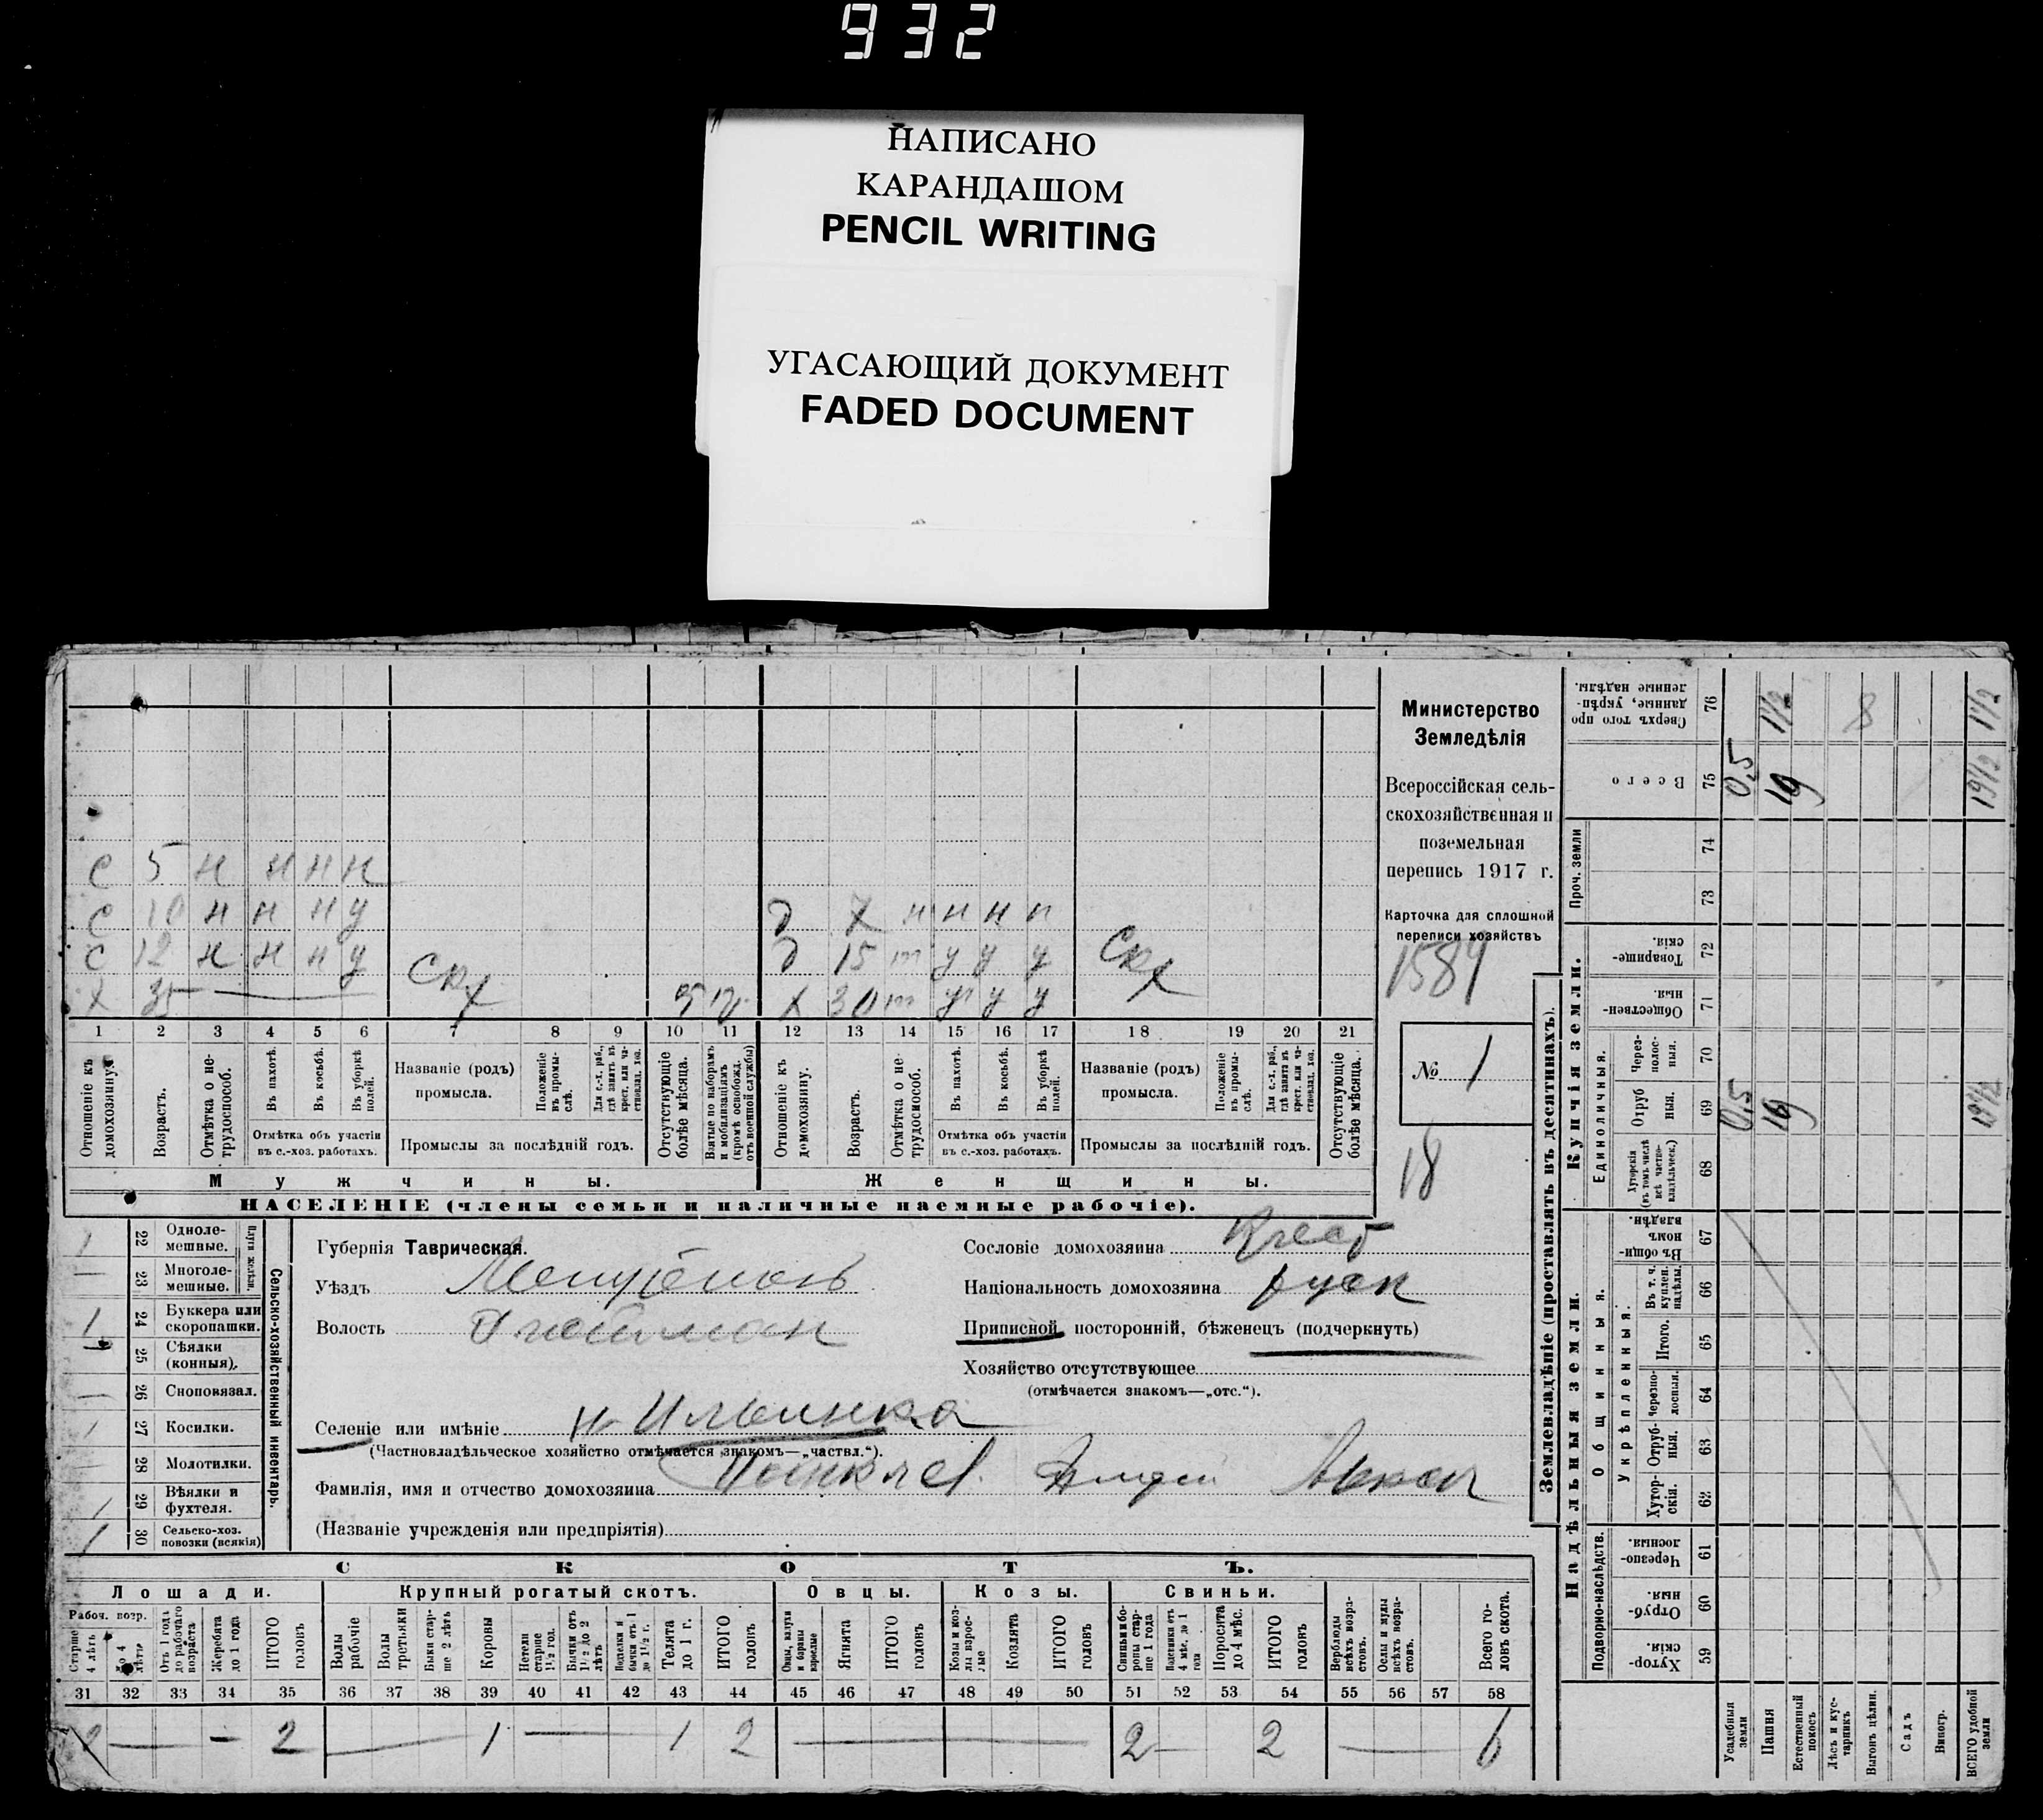 932
НАПИСАНО
КАРАНДАШОМ
PENCIL WRITING
УГАСАЮЩИЙ ДОКУМЕНТ
FADED DOCUMENT
с 5 н н н н
с 10 н н н у д 7 н н н н
с 12 н н н у д 15 т у у у Схх
х 35 Схх х 30 т у у у
1 2 3 4 5 6 7 8 9 10 11 12 13 14 15 16 17 18 19 20 21
Отношеніе къ домохозяину.
Возрастъ.
Отмѣтка о не-трудоспособ.
Въ пахотѣ.
Въ косьбѣ.
Въ уборкѣ полей.
Отмѣтка объ участіи въ с.-хоз. работахъ.
Названіе (родъ) промысла.
Положеніе въ промы-слѣ.
Для с.-х. раб., гдѣ занятъ въ крест. или ча-стновлад. хоз.
Промыслы за послѣдній годъ.
Отсутствующіе болѣе мѣсяца.
Взятые по наборамъ и мобилизаціямъ (кромѣ освобожд. отъ военной службы)
Отношеніе къ домохозяину.
Возрастъ.
Отмѣтка о не-трудоспособ.
Въ пахотѣ.
Въ косьбѣ.
Въ уборкѣ полей.
Отмѣтка объ участіи въ с.-хоз. работахъ.
Названіе (родъ) промысла.
Положеніе въ промы-слѣ.
Для с.-х. раб., гдѣ занята въ крест. или ча-стновлад. хоз.
Промыслы за послѣдній годъ.
Отсутствующіе болѣе мѣсяца.
Мужчины. Женщины.
НАСЕЛЕНІЕ (члены семьи и наличные наемные рабочіе).
Министерство
Земледѣлія
Всероссійская сель-
скохозяйственная и
поземельная
перепись 1917 г.
Карточка для сплошной
переписи хозяйствъ
1589
№ 1
18
Сельско-хозяйственный инвентарь.
Плуги желѣзн.
1 22 Одноле-мешные.
— 23 Многоле-мешные.
1 24 Буккера или скоропашки.
25 Сѣялки (конныя).
— 26 Сноповязал.
1 27 Косилки.
— 28 Молотилки.
1 29 Вѣялки и фухтеля.
1 30 Сельско-хоз. повозки (всякія)
Губернія Таврическая.
Уѣздъ
Волость
Селеніе или имѣніе н-Ильинка
(Частновладѣльческое хозяйство отмѣчается знакомъ—„частвл.“).
Фамилія, имя и отчество домохозяина
(Названіе учрежденія или предпріятія)
Сословіе домохозяина
Національность домохозяина руск
Приписной, посторонній, бѣженецъ (подчеркнуть)
Хозяйство отсутствующее
(отмѣчается знакомъ—„отс.“).
СКОТЪ.
Лошади. Крупный рогатый скотъ. Овцы. Козы. Свиньи.
Рабоч. возр.
Старше 4 лѣтъ
До 4 лѣтъ
Отъ 1 года до рабочаго возраста
Жеребята до 1 года
ИТОГО головъ
Волы рабочіе
Волы третьяки
Быки стар-ше 2 лѣтъ
Коровы
Нетели старше 1½ год.
Бычки отъ 1½ до 2 лѣтъ
Телки и бычки отъ 1 до 1½ г.
Телята до 1 г.
ИТОГО головъ
Овцы, валухи и бараны взрослые
Ягнята
ИТОГО головъ
Козы и коз-лы взрос-лые
Козлята
ИТОГО головъ
Свиньи и бо-ровы стар-ше 1 года
Подсвинки отъ 4 мѣс. до 1 года
Поросята до 4 мѣс.
ИТОГО головъ
Верблюды всѣхъ возра-стовъ.
Ослы и мулы всѣхъ возра-стовъ.
Всего го-ловъ скота.
31 32 33 34 35 36 37 38 39 40 41 42 43 44 45 46 47 48 49 50 51 52 53 54 55 56 57 58
2 — — 2 — 1 — 1 2 — 2 — 2 — 6
Землевладѣніе (проставлять въ десятинахъ).
Сверхъ того про данные, укрѣп-ленные надѣлы. 76 1½ 8 1½
Всего 75 0,5 19 19½
Проч. земли
74
73
Купчія земли.
Товарище-скія. 72
Обществен-ныя. 71
Единоличныя.
Через-полос-ныя. 70
Отруб ныя. 69 0,5 19 19½
Хуторскія (въ томъ числѣ всѣ частно-владѣльческ.) 68
Надѣльныя земли.
Общинныя.
Въ общин-номъ владѣн. 67
Укрѣпленныя.
Въ т. ч. куплен. надѣлы. 66
Итого. 65
Черезпо-лосныя. 64
Отруб-ныя. 63
Хутор-скія. 62
Подворно-наслѣдств.
Черезпо-лосныя 61
Отруб-ныя. 60
Хутор-скія. 59
Усадебныя земли
Пашня
Естественный покосъ
Лѣсъ и кус-тарникъ
Выгонъ цѣлин.
Садъ
Виногр.
ВСЕГО удобной земли